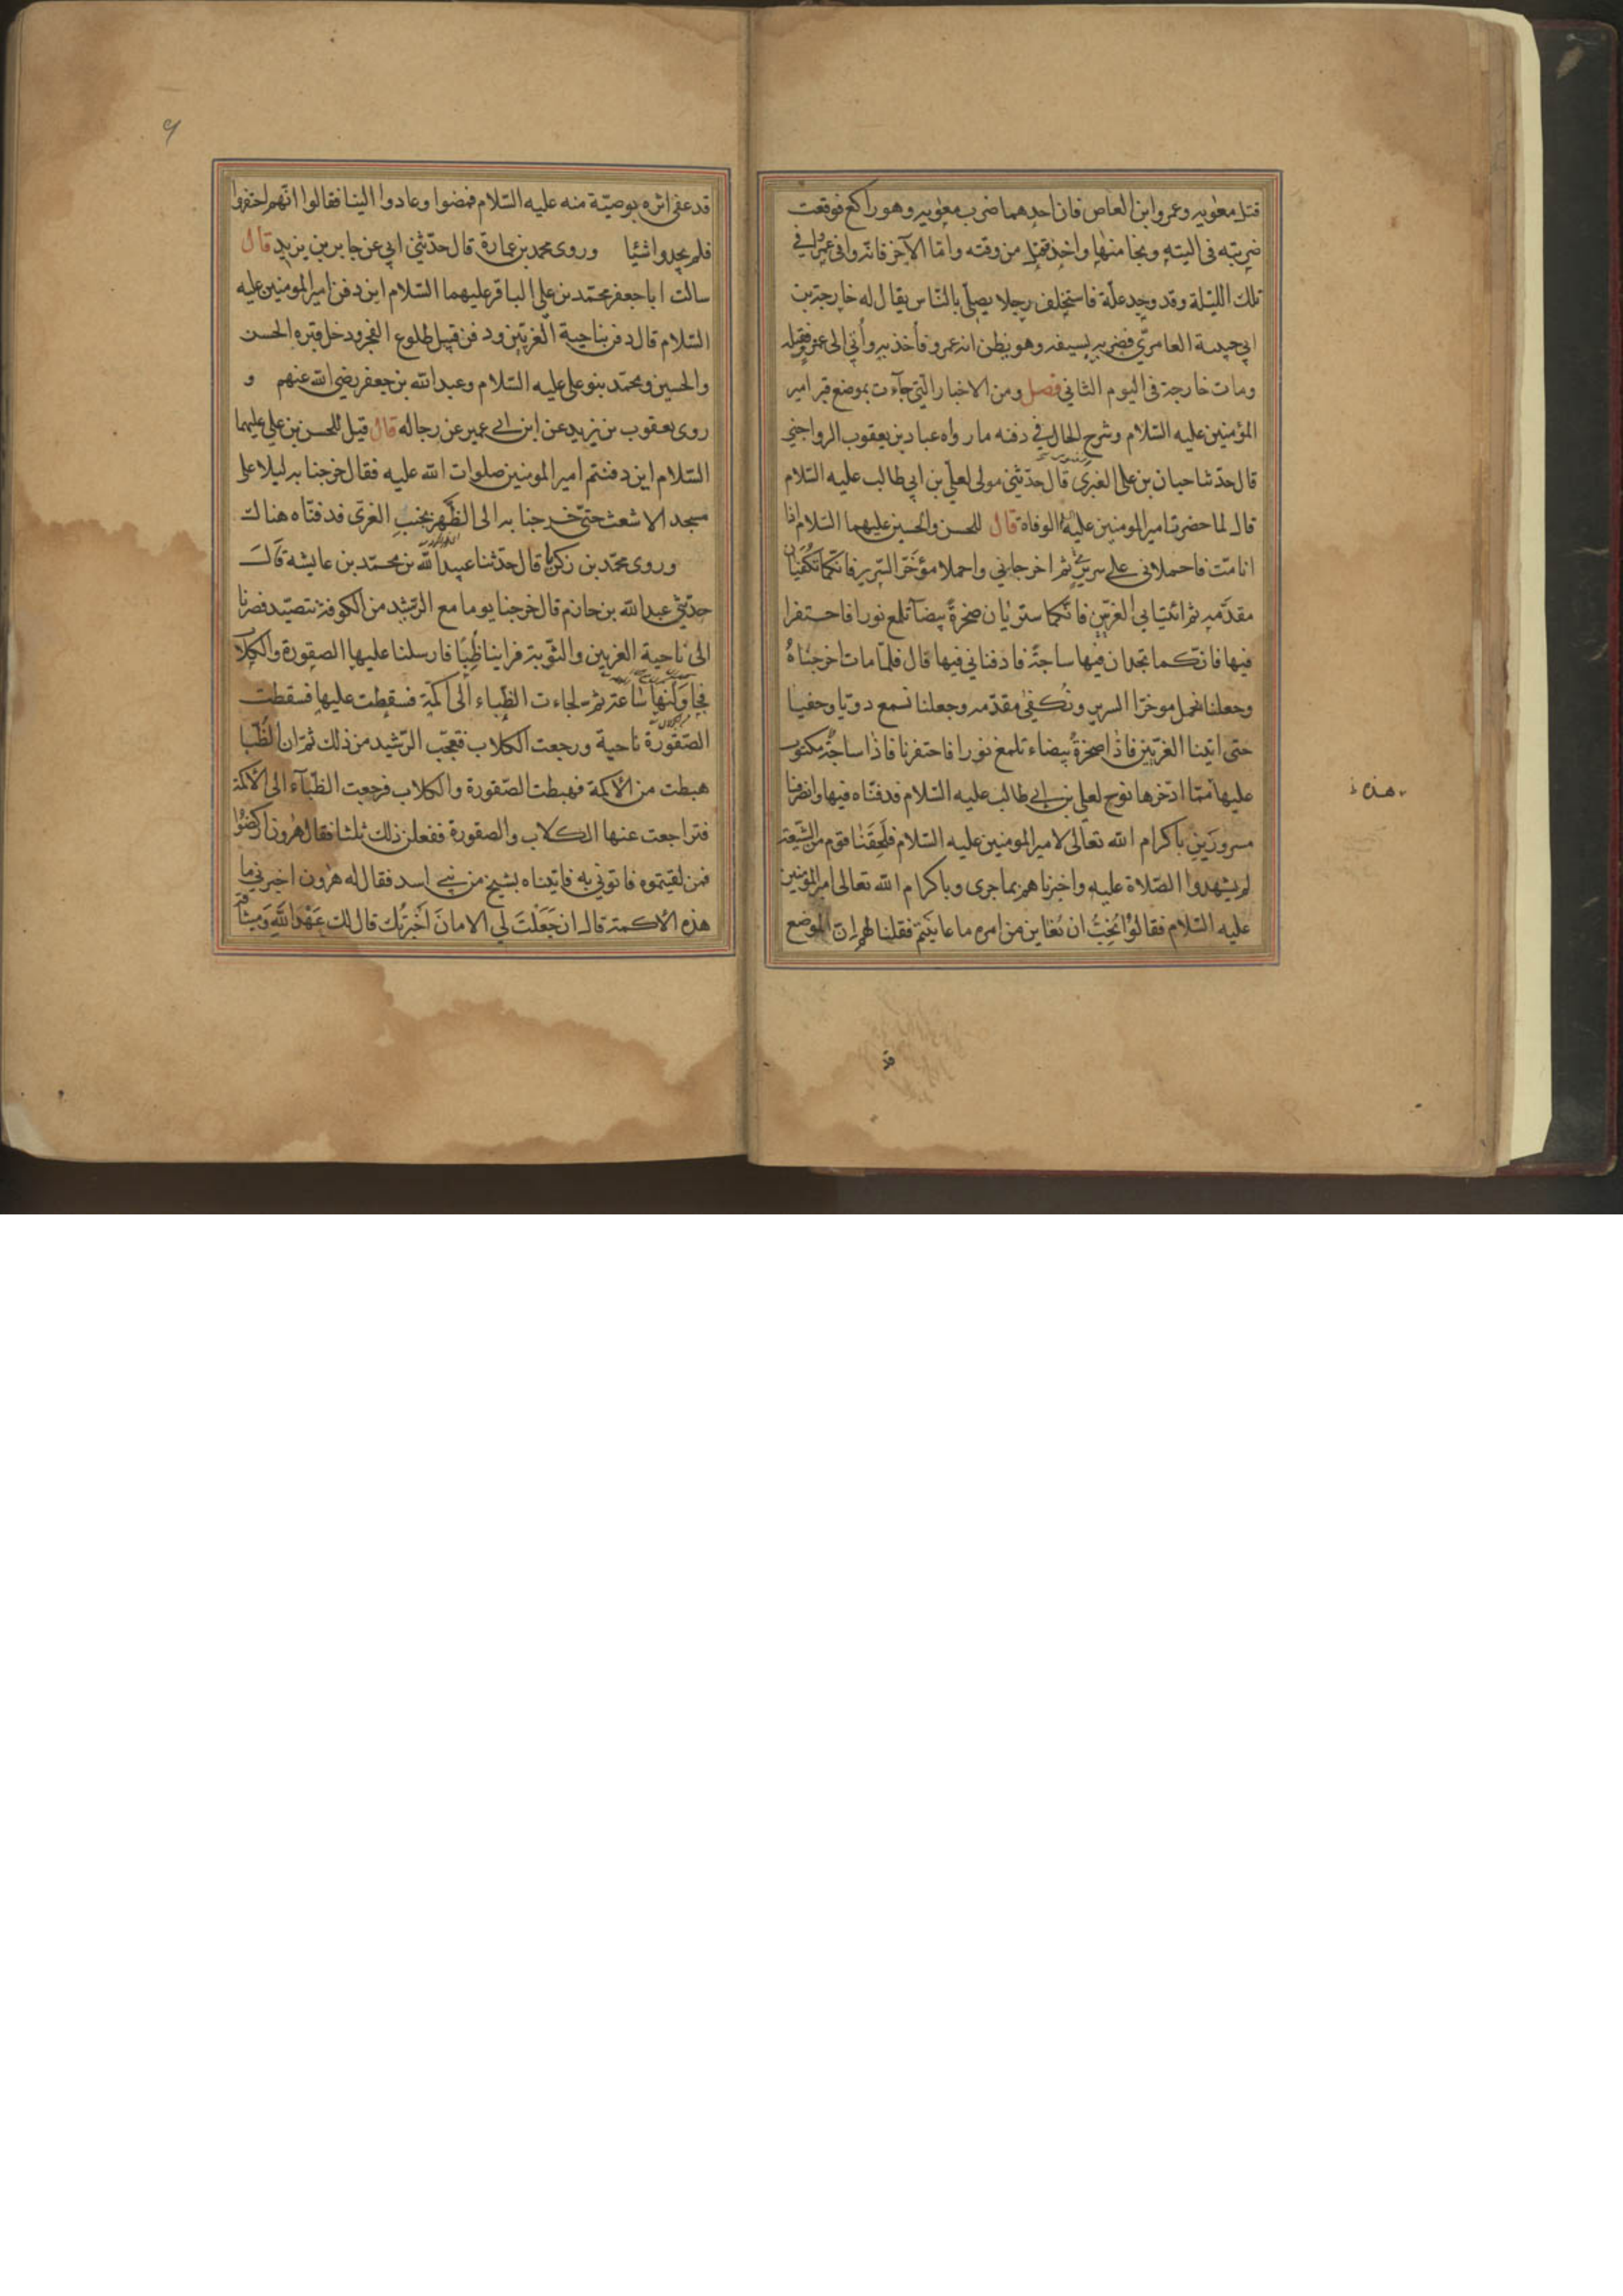 قتل معوية وعمرو ابن العاص فان احدهما ضرب معوية وهو راكع فوقعت
ضربته في اليته ونجا منها واخذ وقتل من وقته واما الآخر فانه وافى عمرا في
تلك الليلة وقد وجد علة فاستخلف رجلا يصلي بالناس يقال له خارجة بن
ابي حبيبة العامري فضربه بسيفه وهو يظن انه عمرو فأخذ به وأتي الى عمرو فقتله
ومات خارجة في اليوم الثاني فصل ومن الاخبار التي جآءت بموضع قبر امير
المؤمنين عليه السلام وشرح الحال في دفنه ما رواه عباد بن يعقوب الرواجني
قال حدثنا حيان بن علي العنزي قال حدثني مولى لعلي بن ابي طالب عليه السلام
قال لما حضرت امير المومنين عليه الوفاة قال للحسن والحسين عليهما السلام اذا
انا متّ فاحملاني على سريري ثم اخرجاني واحملا مؤخّر السرير فانكما تكفيان
مقدّمه ثم ائتيا بي الغريين فانكما ستريان صخرة بيضآ تلمع نورا فاحتفرا
فيها فانكما تجدان فيها ساجة فادفناني فيها قال فلمّا مات اخرجناه
وجعلنا نحمل موخر السرير ونُكفى مقدّمه وجعلنا نسمع دويّا وحفيفا
حتى اتينا الغريّين فاذا صخرة بيضاء تلمع نورا فاحتفرنا فاذا ساجة مكتوب
عليها ممّا ادّخرها نوح لعلي بن ابي طالب عليه السلام فدفنّاه فيها وانصرفنا
هذه
مسرورَين باكرام الله تعالى لامير المومنين عليه السلام فلَحِقَنا قوم من الشيعة
لم يشهدوا الصلاة عليه واخبرناهم بما جرى وباكرام الله تعالى امير المؤمنين
عليه السلام فقالوا نُحِبُّ ان نُعاين من امره ما عاينتم فقلنا لهم ان الموضع
قد
٩
قد عفي اثره بوصيّة منه عليه السّلام فمضوا وعادوا الينا فقالوا انّهم احتفروا
فلم يجدوا شيئا وروى محمد بن عمارة قال حدّثني ابي عن جابر بن يزيد قال
سالت ابا جعفر محمّد بن علي الباقر عليهما السّلام اين دفن امير المومنين عليه
السّلام قال دفن بناحية الغريّين ودفن قبيل طلوع الفجر ودخل قبره الحسن
والحسين ومحمّد بنو علي عليه السّلام وعبد الله بن جعفر رضي الله عنهم و
روى يعقوب بن يزيد عن ابن ابي عمير عن رجاله قال قيل للحسين بن علي عليهما
السّلام اين دفنتم امير المومنين صلوات الله عليه فقال خرجنا به ليلا على
مسجد الاشعث حتّى خرجنا به الى الظَّهر بجنبِ الغريّ فدفنّاه هناك
وروى محمّد بن زكريا قال حدّثنا عبيد الله بن محمّد بن عايشة قال
حدّثني عبد الله بن حازم قال خرجنا يوما مع الرّشيد من الكوفة نتصيّد فصرنا
الى ناحية الغريين والثّوية فراينا ظِبًا فارسلنا عليها الصقورة والكلاب
فجاولتها ساعة ثم لجاءت الظِّباء الى اكمة فسقطت عليها فسقطت
الصّقورة ناحية ورجعت الكلاب فتعجّب الرّشيد من ذلك ثمّ ان الظّبا
هبطت من الأكمة فهبطت الصّقورة والكلاب فرجعت الظّبآء الى الأكمة
فتراجعت عنها الكلاب والصقورة ففعلن ذلك ثلثا فقال هرون اركضوا
فمن لقيتموه فاتوني به فاتيناه بشيخ من بني اسد فقال له هرون اخبرني ما
هذه الأكمة قال ان جَعَلْتَ لي الامانَ اَخْبَرتُك قال لك عَهْدُ اللهِ وَميثاقه